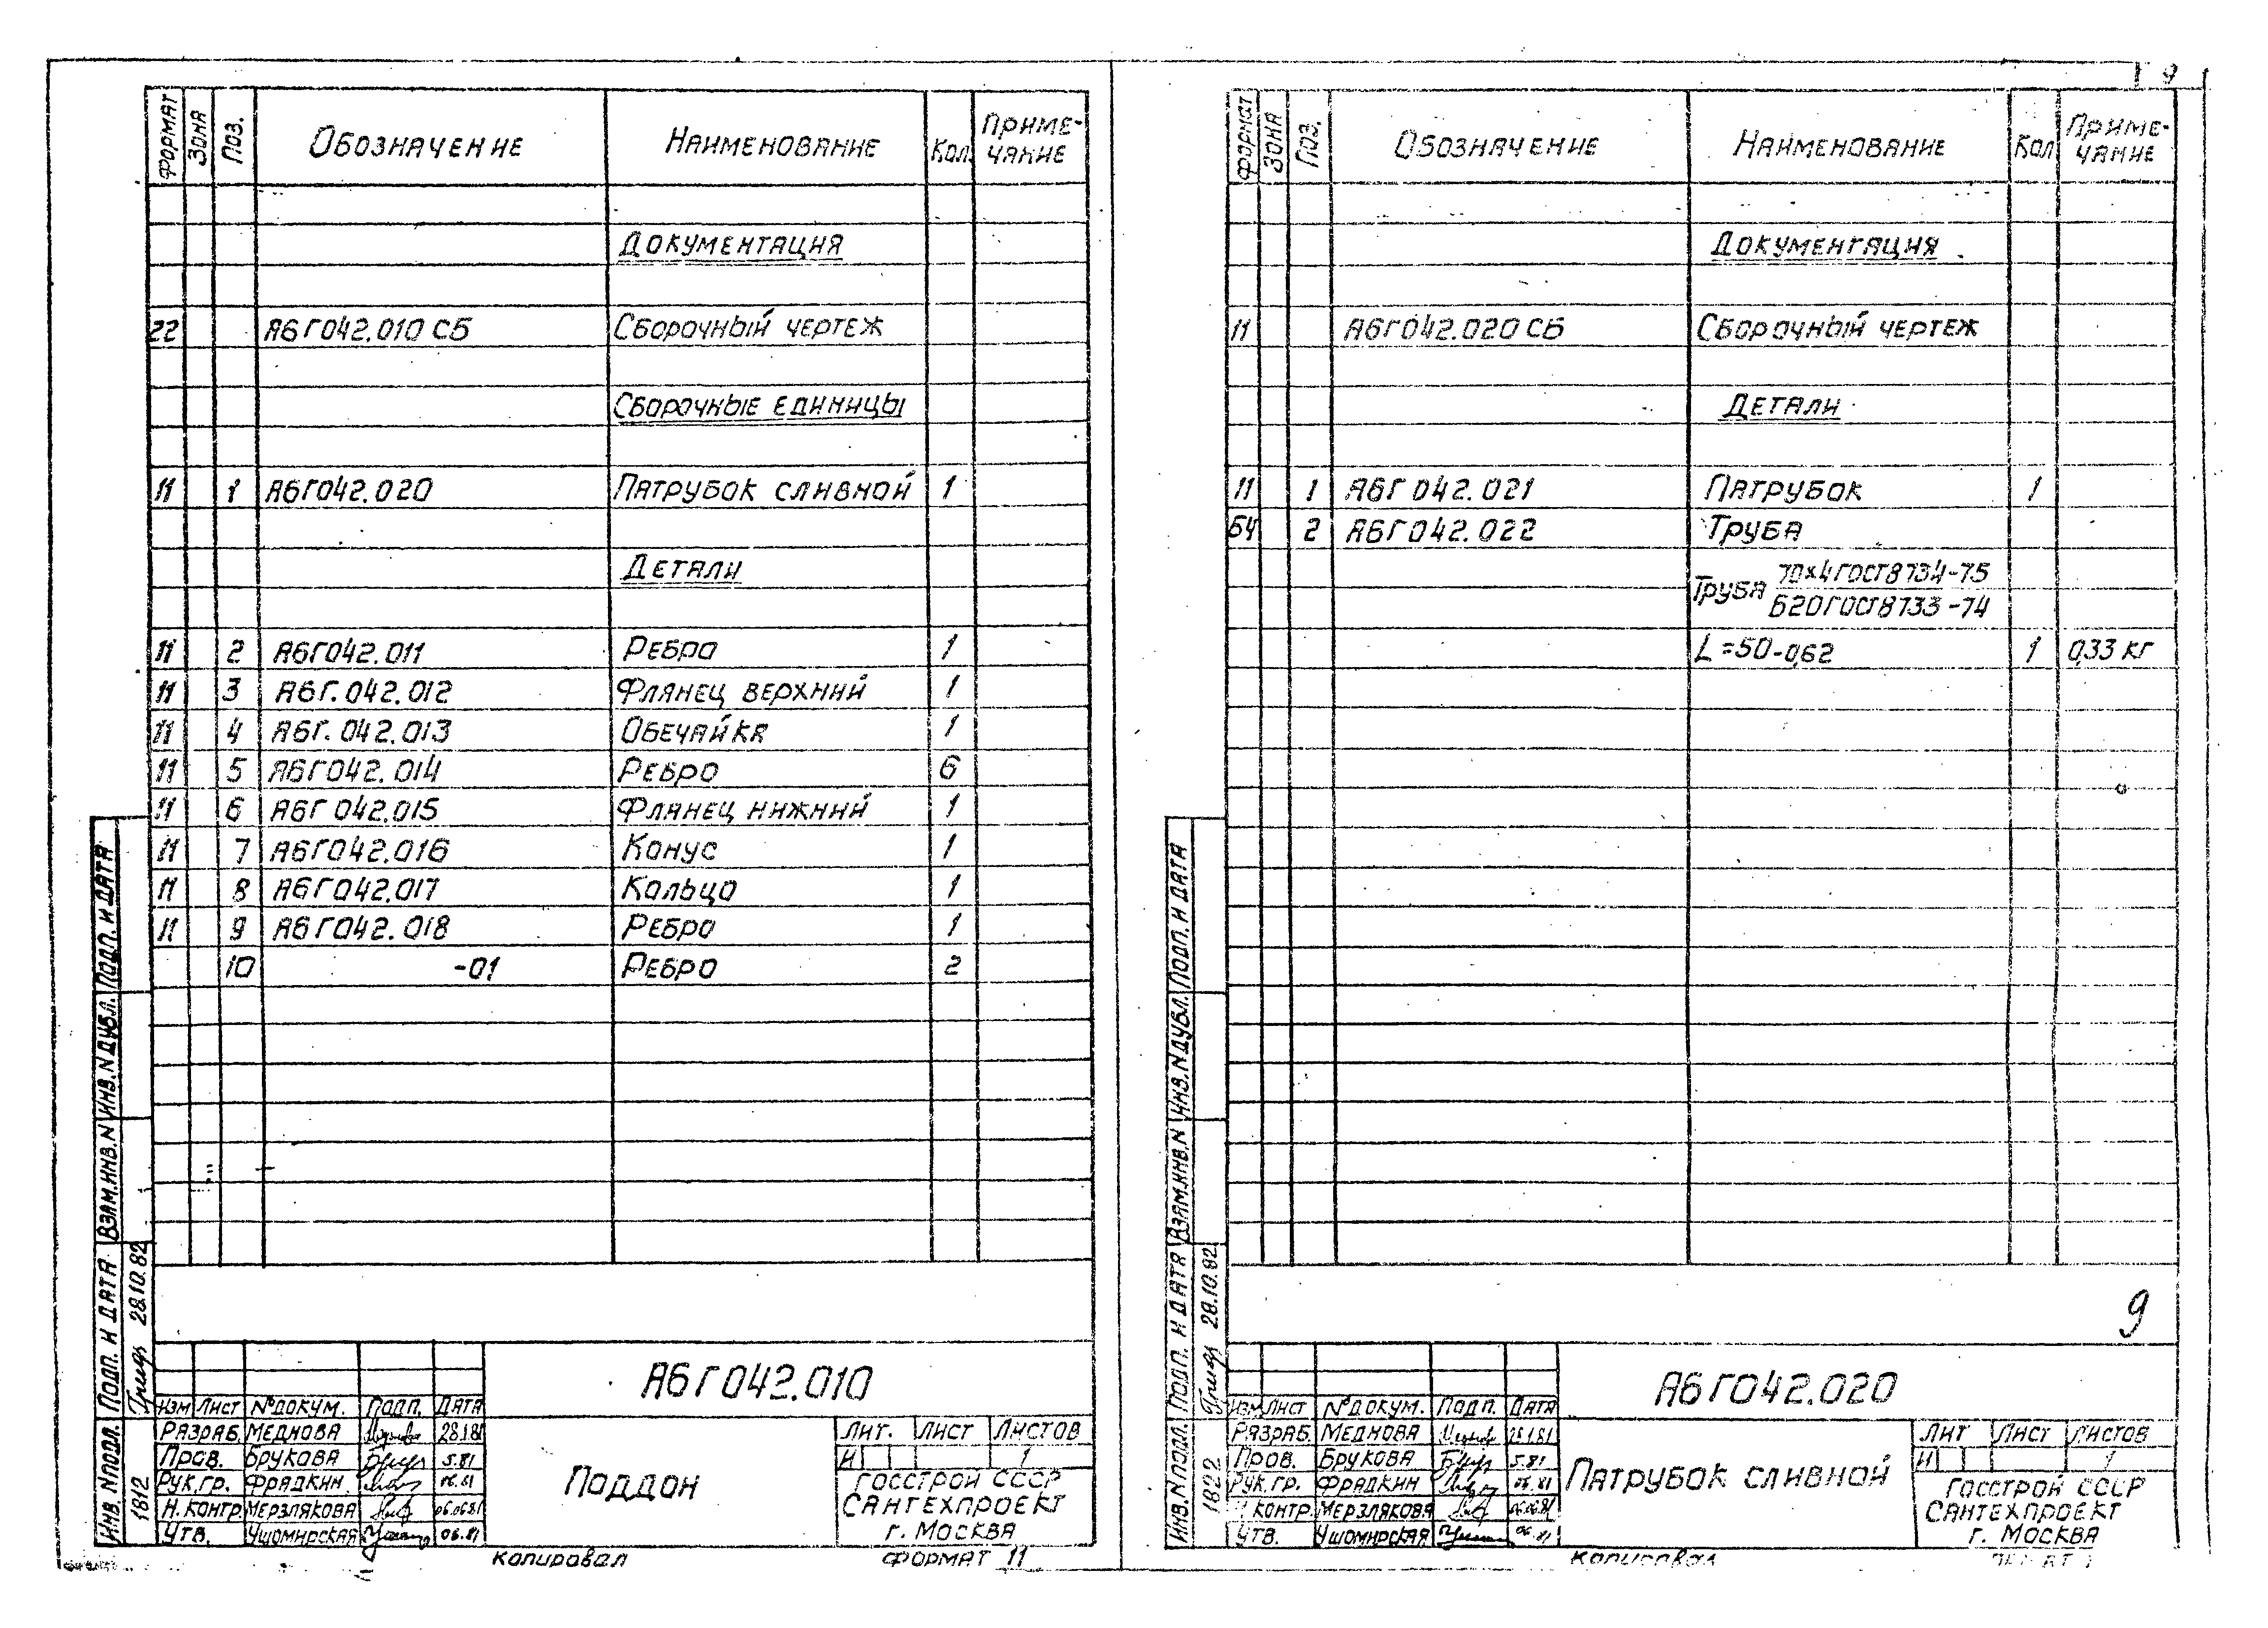 9
ФОРМАТ ЗОНА ПОЗ. ОБОЗНАЧЕНИЕ НАИМЕНОВАНИЕ КОЛ. ПРИМЕ-
ЧАНИЕ
ДОКУМЕНТАЦИЯ
22 А6Г042.010 СБ СБОРОЧНЫЙ ЧЕРТЕЖ
СБОРОЧНЫЕ ЕДИНИЦЫ
11 1 А6Г042.020 ПАТРУБОК СЛИВНОЙ 1
ДЕТАЛИ
11 2 А6Г042.011 РЕБРО 1
11 3 А6Г.042.012 ФЛАНЕЦ ВЕРХНИЙ 1
11 4 А6Г.042.013 ОБЕЧАЙКА 1
11 5 А6Г042.014 РЕБРО 6
11 6 А6Г042.015 ФЛАНЕЦ НИЖНИЙ 1
11 7 А6Г042.016 КОНУС 1
11 8 А6Г042.017 КОЛЬЦО 1
11 9 А6Г042.018 РЕБРО 1
10 -01 РЕБРО 2
ИНВ.N ПОДЛ. ПОДП. И ДАТА ВЗАМ.ИНВ.N ИНВ.N ДУБЛ. ПОДП. И ДАТА
1812 28.10.82
А6Г042.010
ИЗМ ЛИСТ N°ДОКУМ. ПОДП. ДАТА
РАЗРАБ. МЕДНОВА 28.1.81
ПРОВ. БРУКОВА 5.81
РУК.ГР. ФРАДКИН 06.81
Н.КОНТР. МЕРЗЛЯКОВА 06.06.81
УТВ. УШОМИРСКАЯ 06.81
ПОДДОН
ЛИТ. ЛИСТ ЛИСТОВ
И 1
ГОССТРОЙ СССР
САНТЕХПРОЕКТ
г. МОСКВА
КОПИРОВАЛ ФОРМАТ 11
ФОРМАТ ЗОНА ПОЗ. ОБОЗНАЧЕНИЕ НАИМЕНОВАНИЕ КОЛ ПРИМЕ-
ЧАНИЕ
ДОКУМЕНТАЦИЯ
11 А6Г042.020 СБ СБОРОЧНЫЙ ЧЕРТЕЖ
ДЕТАЛИ
11 1 А6Г042.021 ПАТРУБОК 1
БЧ 2 А6Г042.022 ТРУБА
ТРУБА 70×4 ГОСТ 8734-75
Б20 ГОСТ 8733-74
L=50-0,62 1 0,33 КГ
ИНВ.N ПОДЛ. ПОДП. И ДАТА ВЗАМ.ИНВ.N ИНВ.N ДУБЛ. ПОДП. И ДАТА
1822 28.10.82
9
А6Г042.020
ИЗМ ЛИСТ N°ДОКУМ. ПОДП. ДАТА
РАЗРАБ. МЕДНОВА 28.1.81
ПРОВ. БРУКОВА 5.81
РУК.ГР. ФРАДКИН 06.81
Н.КОНТР. МЕРЗЛЯКОВА 06.06.81
УТВ. УШОМИРСКАЯ 06.81
ПАТРУБОК СЛИВНОЙ
ЛИТ ЛИСТ ЛИСТОВ
И 1
ГОССТРОЙ СССР
САНТЕХПРОЕКТ
г. МОСКВА
КОПИРОВАЛ